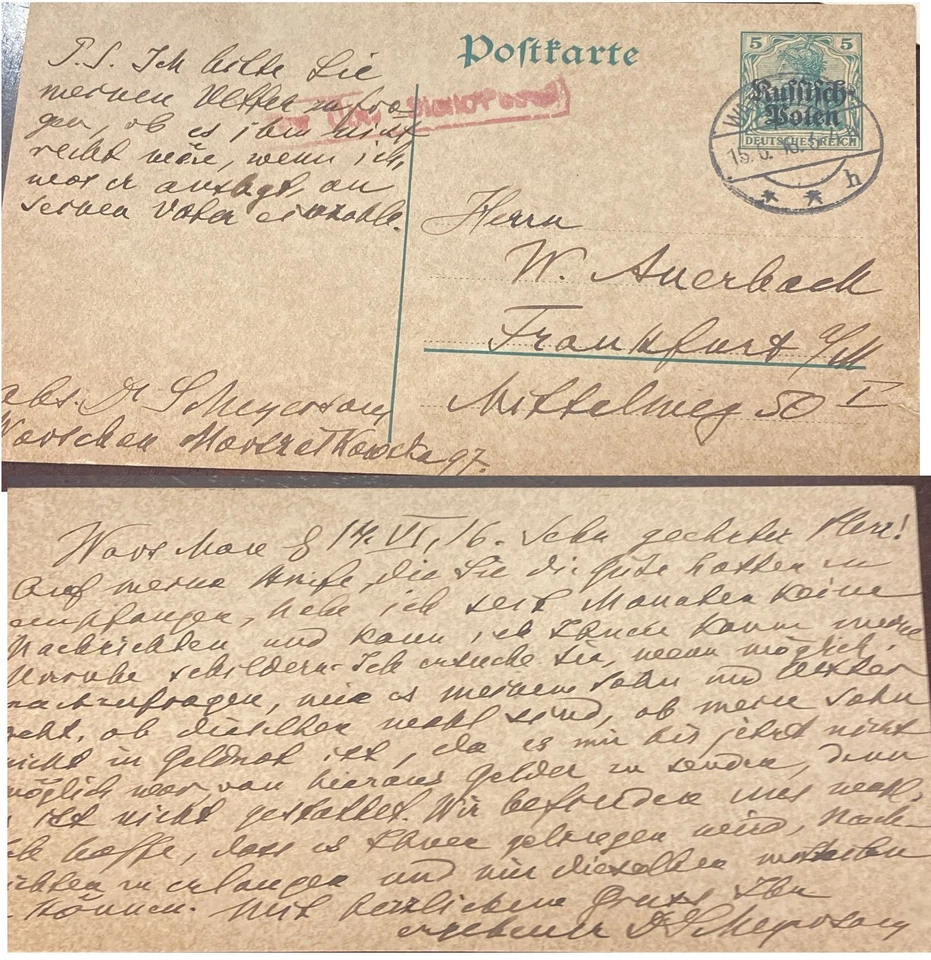 P.S. Ich bitte Sie
meinen Vetter zu fra-
gen, ob es ihm nicht
recht wäre, wenn ich,
was er auslegt an
seinen Vater einzahle.
Postkarte
5 5
Russisch-
Polen
DEUTSCHES REICH
15. 6. 16.
h
Herrn
W. Auerbach
Frankfurt a/M
Mittelweg 50 I
abs. Dr S Meyerson
Warschau Marszalkowska 97.
Warschau 17. VI, 16. Sehr geehrter Herr!
Auf meine Briefe, die Sie die Güte hatten zu
empfangen, habe ich seit Monaten keine
Nachrichten und kann ich Ihnen kaum meine
Unruhe schildern. Ich ersuche Sie, wenn möglich,
nachzufragen, wie es meinem Sohn und Vetter
geht, ob dieselben wohl sind, ob mein Sohn
nicht in Geldnot ist, da es mir bis jetzt nicht
möglich war von hieraus Gelder zu senden, denn
ist nicht gestattet. Wir befinden uns wohl,
Ich hoffe, dass es Ihnen gelingen wird, Nach-
richten zu erlangen und mir dieselben
können. Mit herzlichem Gruss Ihr
ergebener Dr S Meyerson